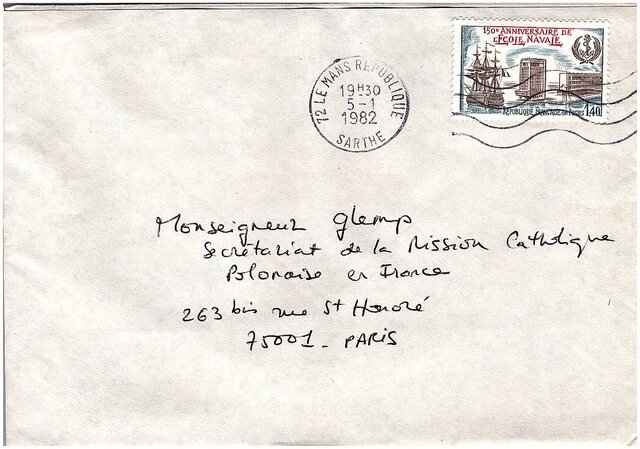 150e ANNIVERSAIRE DE
L'ECOLE NAVALE
REPUBLIQUE FRANÇAISE
1,40
72 LE MANS REPUBLIQUE
19H30
5-1
1982
SARTHE
Monseigneur Glemp
Secrétariat de la Mission Catholique
Polonaise en France
263 bis rue St Honoré
75001 - PARIS